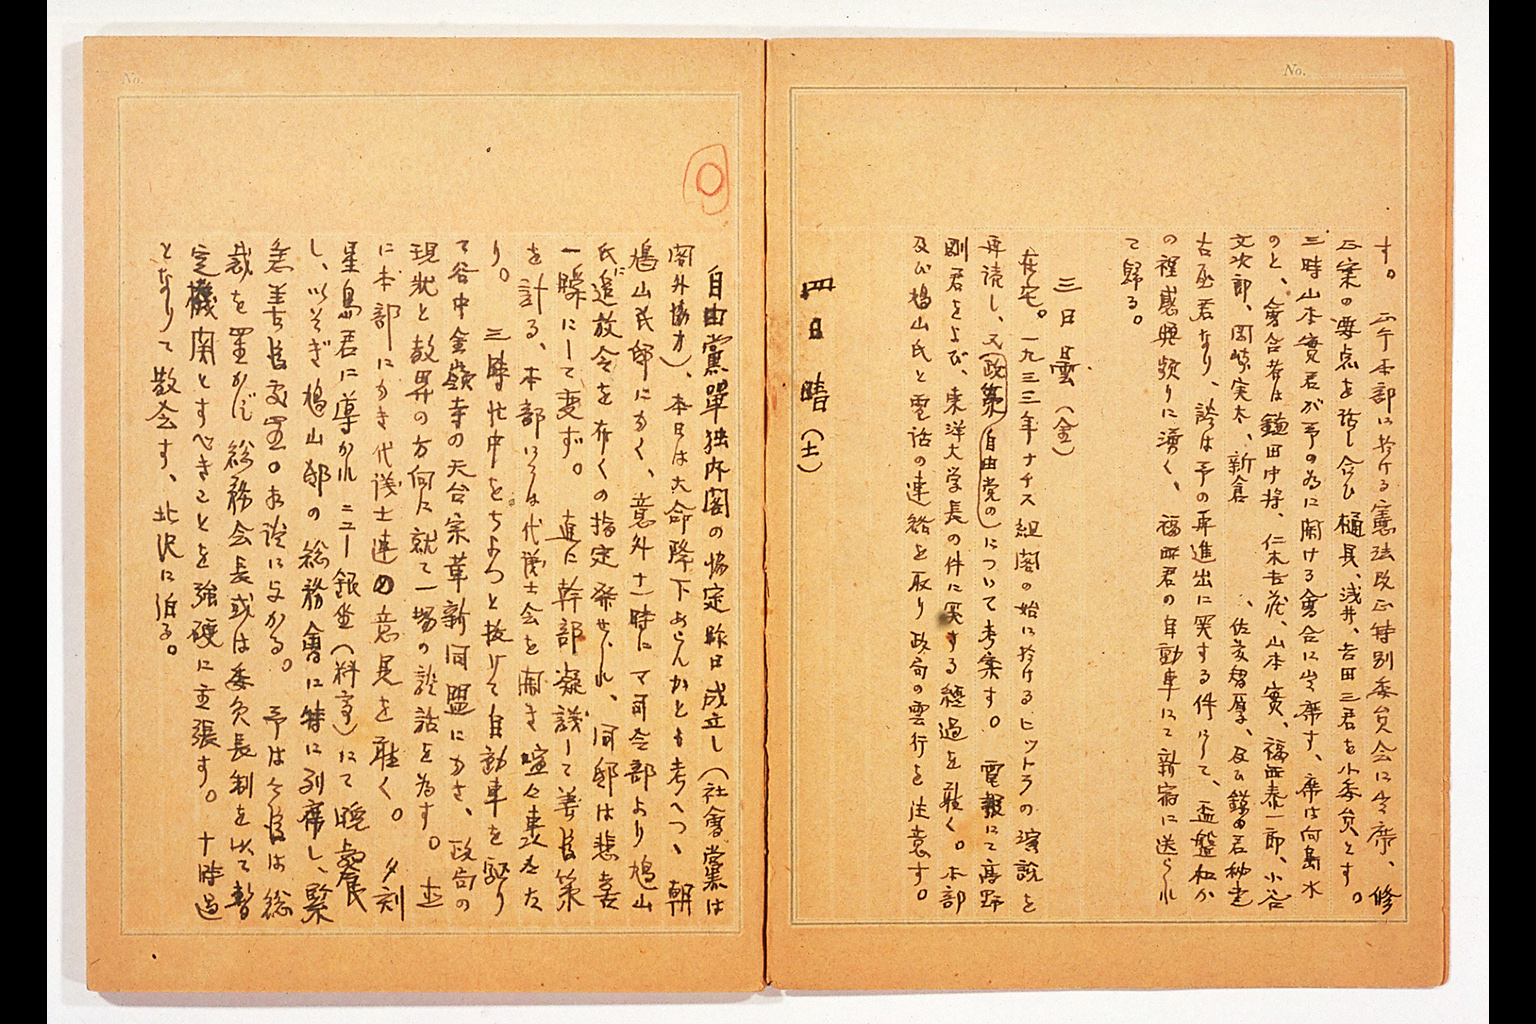 No.
す。正午本部に於ける憲法改正特別委員会に出席、修
正案の要点を話し合ひ樋貝、浅井、吉田三君を小委員とす。
三時山本實君が予の為に開ける會合に出席す、席は向島水
のと、會合者は鎌田中将、仁木吉蔵、山本實、福西泰一郎、小谷
文次郎、岡崎実太、新倉　　　、佐万智厚、及び鎌田君秘書
古座君なり、談は予の再進出に関する件にて、盃盤和か
の裡感興頻りに湧く、福西君の自動車にて新宿に送られ
て歸る。
三日 曇（金）
在宅。一九三三年ナチス組閣の始に於けるヒットラの演説を
再読し、又政策自由党のについて考案す。電報にて高野
剛君をよび、東洋大学長の件に関する經過を聴く。本部
及び鳩山氏と電話の連絡を取り政局の雲行を注意す。
四日 晴（土）
No.
自由黨單独内閣の協定昨日成立し（社會黨は
閣外協力）、本日は大命降下あらんかとも考へつゝ、朝
鳩山氏邸にゆく、意外十一時にマ司令部より鳩山
氏に追放令を布くの指定発せられ、同邸は悲喜
一瞬にして変ず。直に幹部凝議して善後策
を計る、本部にては代議士会を開き喧々集合をた
り。三時忙中をちよつと抜けて自動車を駆り
て谷中金嶺寺の天台宗革新同盟にゆき、政局の
現状と教界の方向に就て一場の談話を為す。並
に本部にゆき代議士連の意見を聴く。夕刻
星島君に導かれニュー銀座（料亭）にて晩餐
し、いそぎ鳩山邸の総務會に特に列席し、緊
急善後処置の相談に与かる。予は今後は総
裁を置かず総務会長或は委員長制を以て暫
定機関とすべきことを強硬に主張す。十時過
となりて散会す、北沢に泊る。